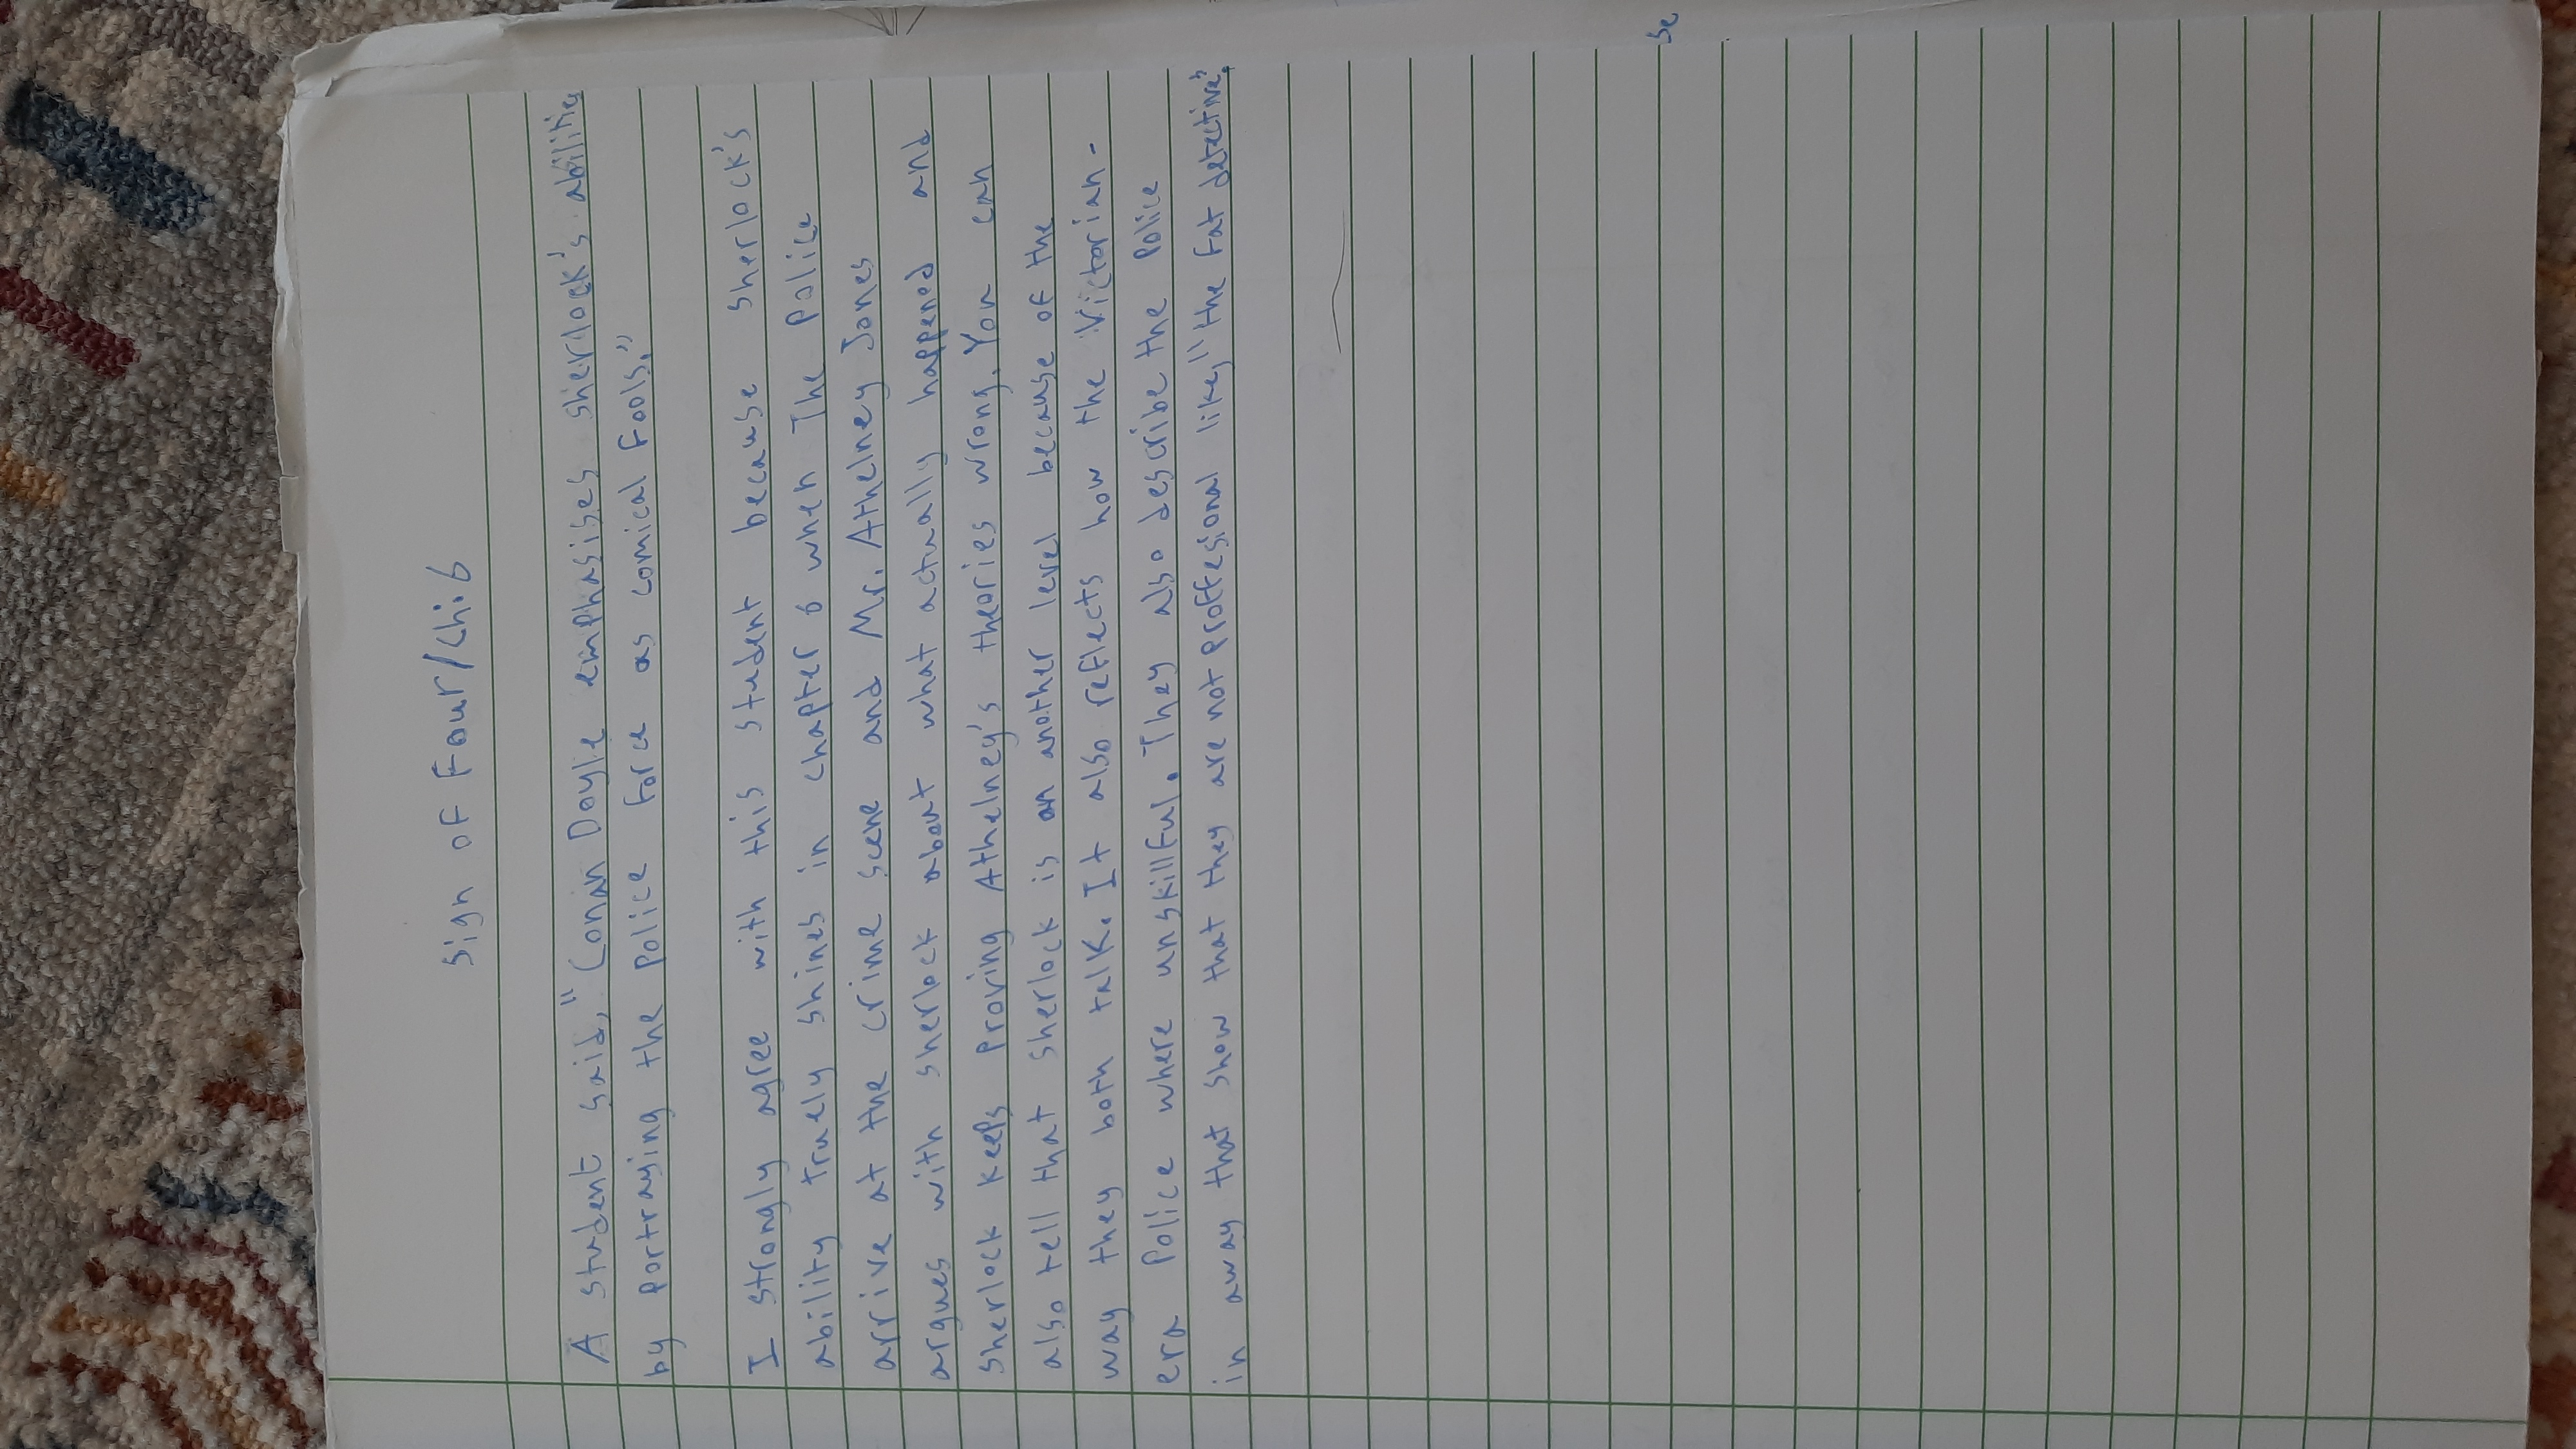 Sign of Four/Ch:6
A student said, "Conan Doyle emphasises sherlock's abilities
by portraying the police force as comical fools."
I strongly agree with this student because sherlock's
ability truely shines in chapter 6 when The Police
arrive at the crime scene and Mr. Athelney Jones
argues with sherlock about what actually happened and
Sherlock keeps proving Athelney's theories wrong. You can
also tell that sherlock is on another level because of the
way they both talk. It also reflects how the Victorian-
era Police where unskillful. They also describe the Police
in away that show that they are not proffesional like, "the fat detective".
Se